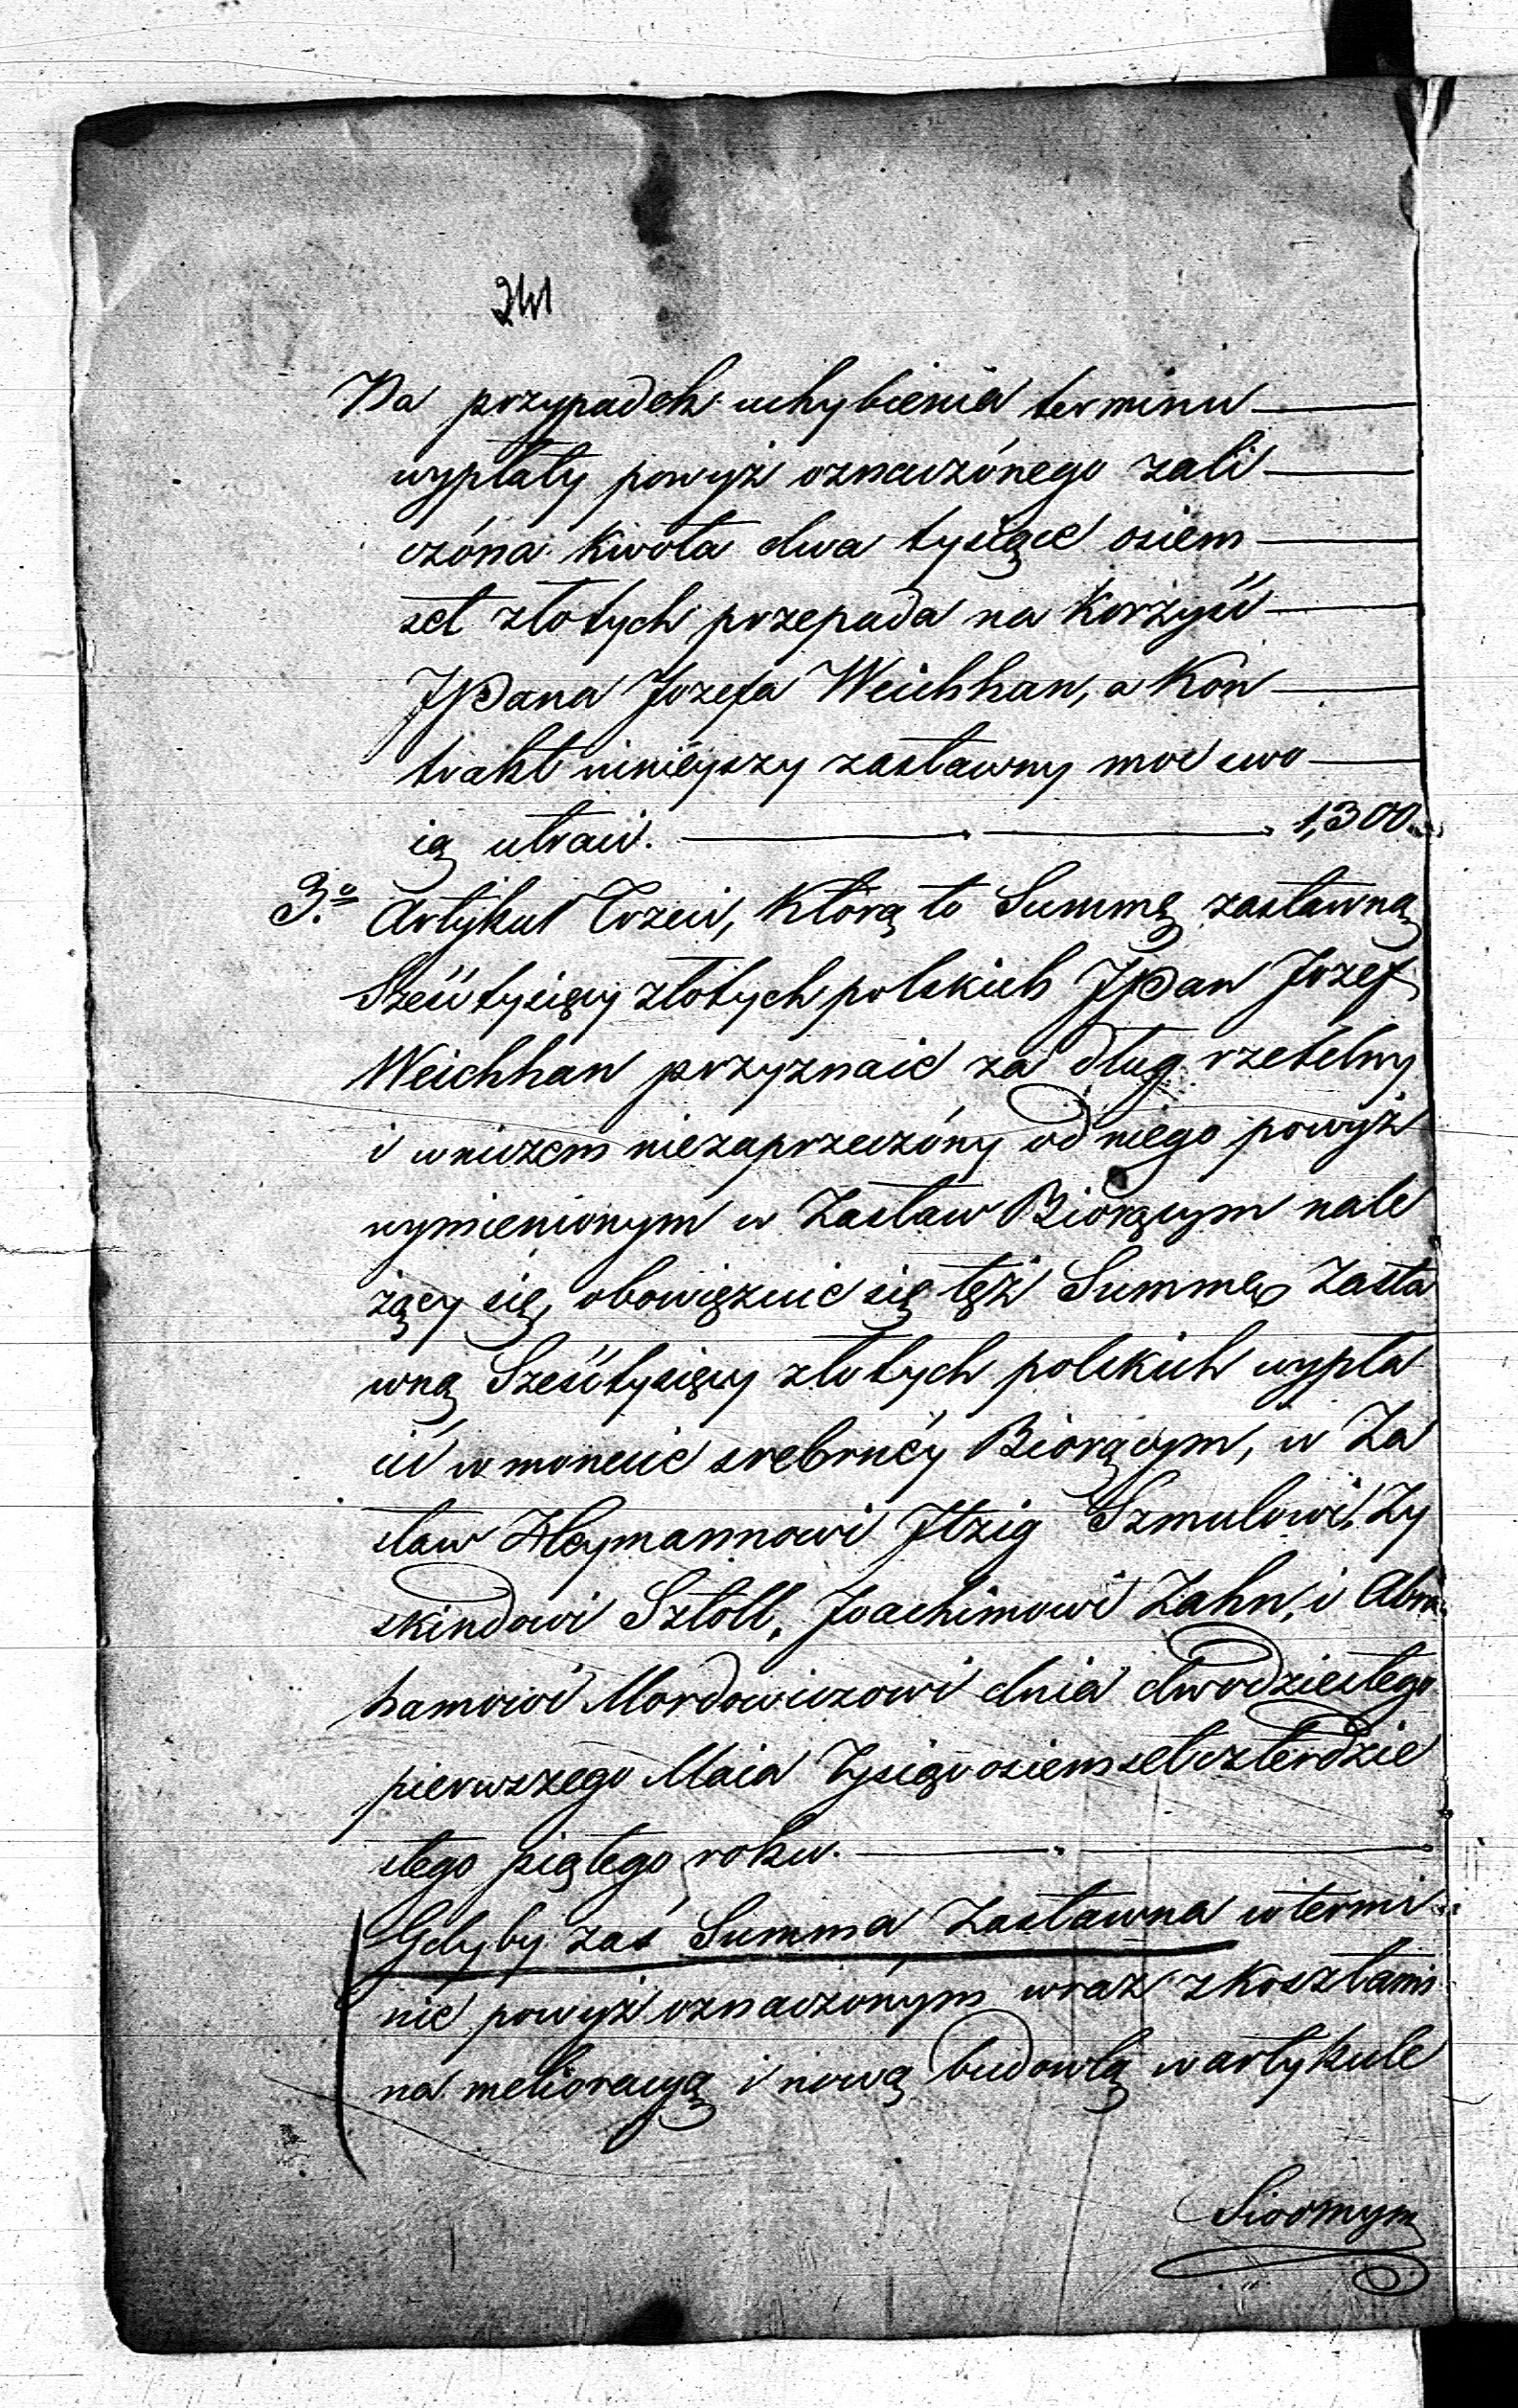 241
Na przypadek uchybienia terminu
wypłaty powyż oznaczónego zali
czóna kwota dwa tysiące osiem
set złotych przepada na korzyść
JPana Jozefa Weichhan, a kon
trakt ninieyszy zastawny moc swo
ią utraci. 1,300
3.o Artykuł Trzeci, Którą to Summę zastawną
Sześć tysięcy złotych polskich JPan Jozef
Weichhan przyznaie za dług rzetelny
i wniczem niezaprzeczóny od niego powyż
wymienionym w Zastaw Biorącym nale
żący się, obowięzuie się też Summę Zasta
wną Sześć tysięcy złotych polskich wypła
cić w monecie srebrnéy Biorącym, w Za
staw Heymannowi Itzig Szmulowi, Zy
skindowi Sztoll, Joachimowi Zahn, i Abra
hamowi Mordowiczowi dnia dwodziestego
pierwszego Maia Tysiąc osiemset czterdzie
stego piątego roku.
Gdyby zaś Summa Zastawna w termi
nie powyż oznaczónym wraz z kosztami
na melioracyą i nową budowlą w artykule
Siodmym